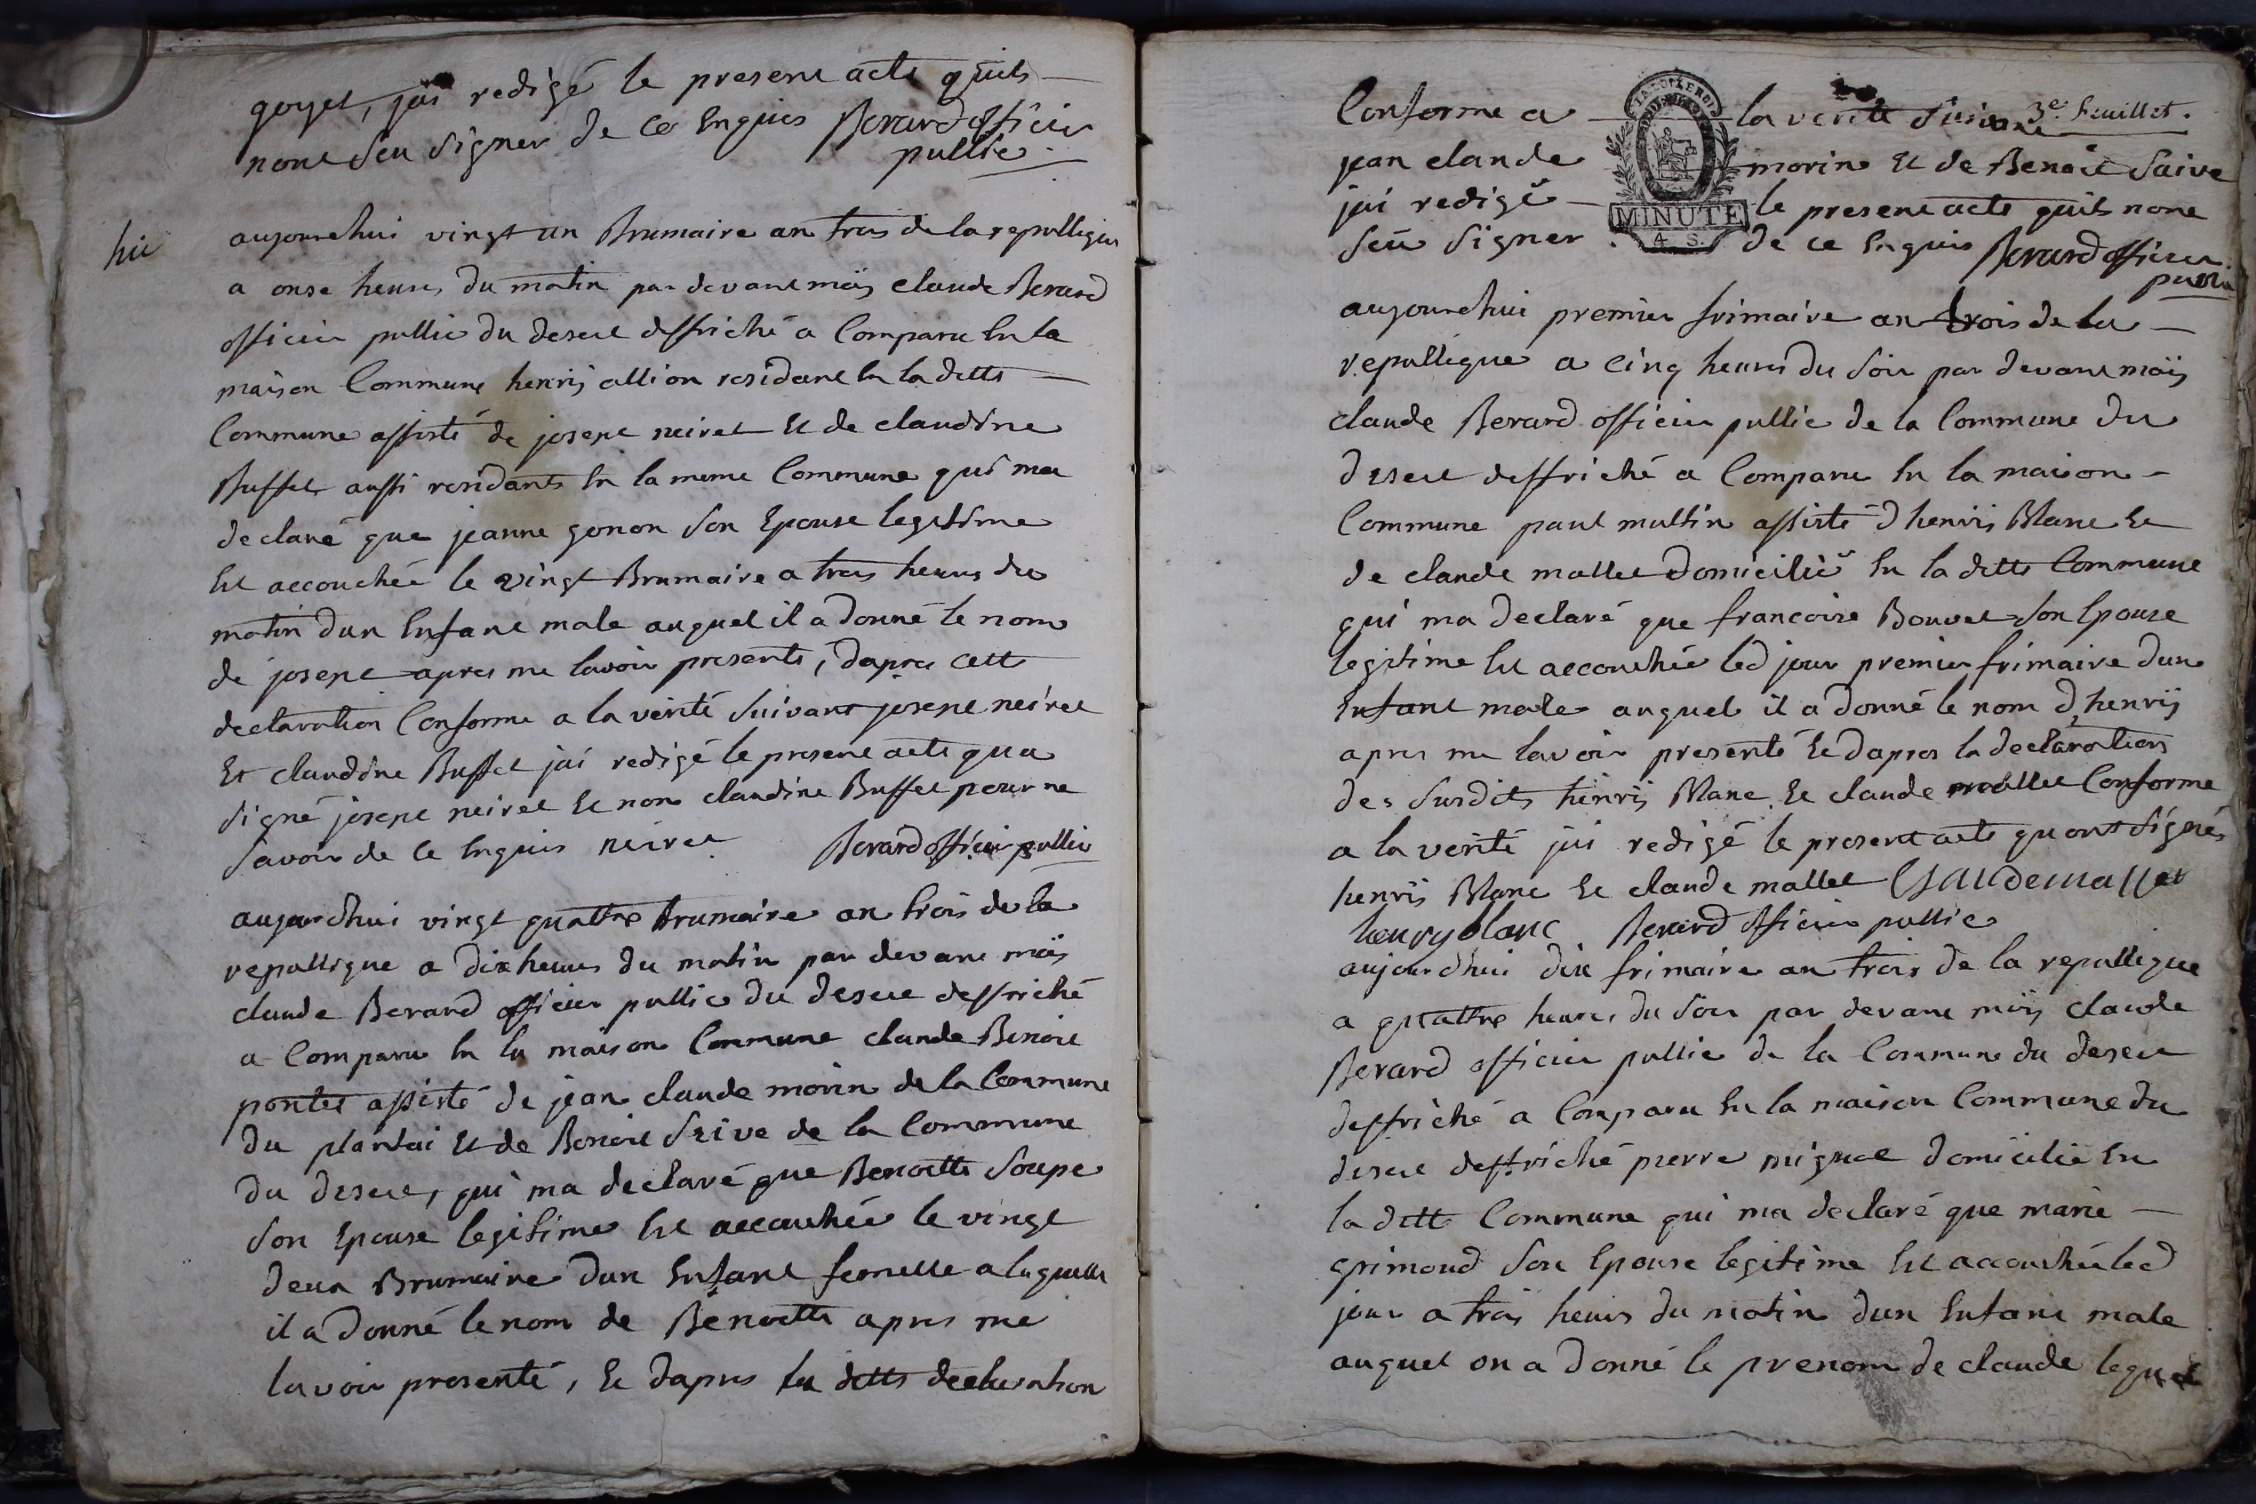 goyet, jai redigé le present acte quils
nont seu signer de ce Enquis Berard officier
public
hic
aujourdhui vingt un Brumaire an trois de la republique
a onse heures du matin par devant moÿ claude Berard
officier public du desert deffriché a Comparu En la
maison Commune henrij allion residant En la ditte
Commune assisté de josept neiret Et de claudine
Buffet aussi residants En la meme Commune qui ma
declaré que jeanne gonon son Epouse legitime
Est accouchée le vingt Brumaire a trois heures du
matin dun Enfant male auquel il a donné le nom
de josept apres me lavoir presenté, dapres cette
declaration Conforme a la vérité suivant josept neiret
Et claudine Buffet jai redigé le present acte qua
signé josept neiret Et non claudine Buffet pour ne
savoir de ce Enquis neiret Berard officier public
aujourdhui vingt quattre brumaire an trois de la
republique a dix heures du matin par devant moÿ
claude Berard officier public du desert deffriché
a Comparu En la maison Commune claude Benoit
pontet assisté de jean claude morin de la Commune
du plantai Et de Benoit Saive de la Commune
du desert, qui ma declaré que Benoitte Soupe
son Epouse legitime Est accouchée le vingt
deux Brumaire dun Enfant femelle a laquelle
il a donné le nom de Benoitte apres me
lavoir presenté, Et dapres la ditte declaration
3e. feuillet.
Conforme a la verité suivant
jean claude morin Et de Benoit Saive
jai redigé le present acte quils nont
seu signer de ce Enquis Berard officier
public
MINUTE
4 S.
aujourdhui premier frimaire an trois de la
republique a cinq heures du soir par devant moÿ
claude Berard officier public de la Commune du
desert deffriché a Comparu En la maison
Commune paul multin assisté dhenrij Blanc Et
de claude mallet domicilié En la ditte Commune
qui ma declaré que francoise Bouvet son Epouse
legitime Est accouchée led jour premier frimaire dun
Enfant male auquel il a donné le nom d,henrij
apres me lavoir presenté Et dapres la declaration
des susdits henrij Blanc Et claude mallet Conforme
a la verité jai redigé le present acte quont signés
henrij Blanc Et claude mallet Claude mallet
henry blanc Berard officier public
aujourdhui dix frimaire an trois de la republique
a quattre heures du soir par devant moÿ claude
Berard officier public de la Commune du desert
deffriché a Comparu En la maison Commune du
desert deffriché pierre mignot domicilié En
la ditte Commune qui ma declaré que marie
grimoud son Epouse legitime Est accouchée led
jour a trois heures du matin dun Enfant male
auquel on a donné le prenom de claude lequel